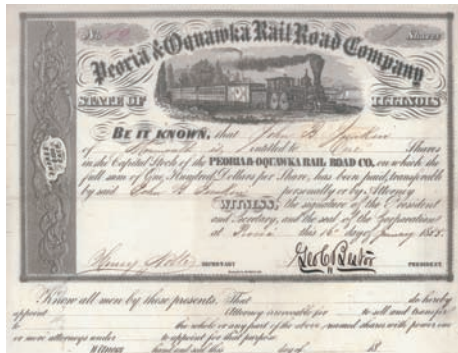 No.
Shares
Peoria & Oquawka Rail Road Company
STATE OF ILLINOIS
BE IT KNOWN, that John B. Junkin
of Monmouth is entitled to One Shares
in the Capital Stock of the PEORIA & OQUAWKA RAIL ROAD CO. on which the
full sum of One Hundred Dollars per Share, has been paid, transferable
by said John B Junkin personally or by Attorney
WITNESS, the signature of the President
and Secretary, and the seal of the Corporation
at Peoria this 16 day of January 185
Henry SECRETARY PRESIDENT
Know all men by these presents, That do hereby
appoint Attorney irrevocable for to sell and transfer
to the whole or any part of the above named shares with power one
or more attorneys under to appoint for that purpose
Witness hand and seal this day of 18